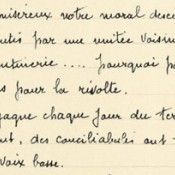 miséreux notre moral desce
utés par une unitée voisin
ntinerie .... pourquoi p
s pour la révolte.
gagne chaque jour du ter
ut, des conciliabules ont
voix basse.